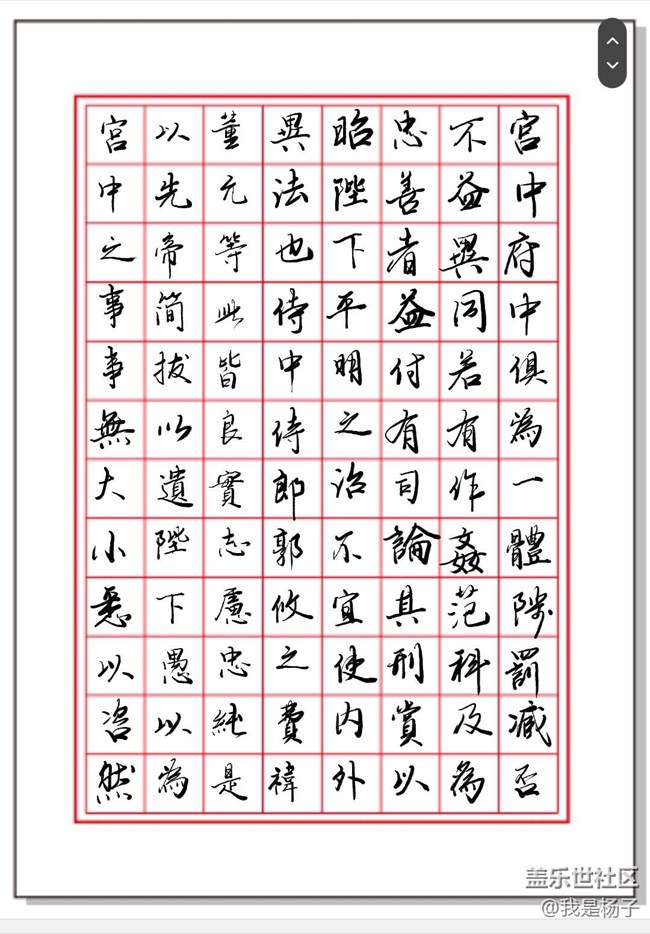 宮中府中俱為一體陟罰減否
不益異同若有作姦范科及為
忠善者益付有司論其刑賞以
昭陛下平明之治不宜使内外
異法也侍中侍郎郭攸之費禕
董元等此皆良實志慮忠純是
以先帝简拔以遺陛下愚以為
宮中之事事無大小悉以咨然
盖乐世社区
@我是杨子